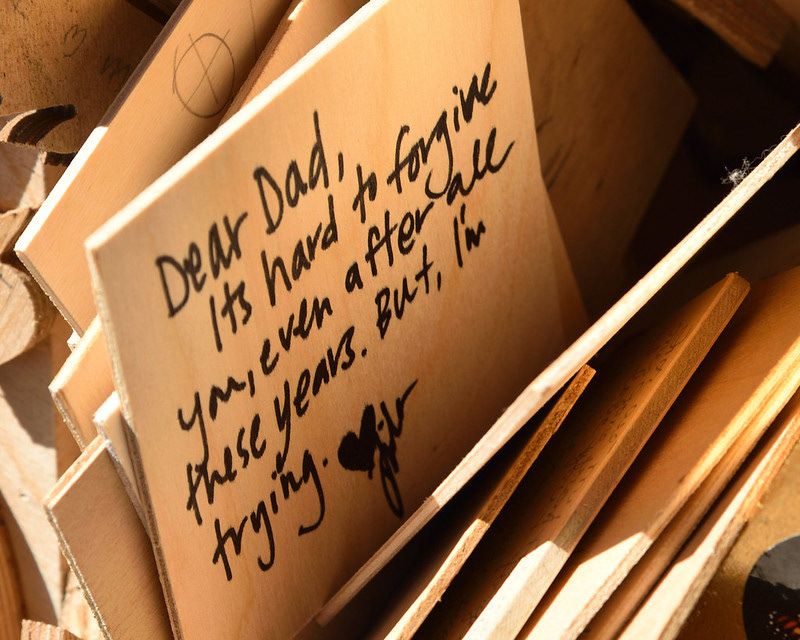 Dear Dad,
Its hard to forgive
you, even after all
these years. But, I'm
trying. ♥ jlr